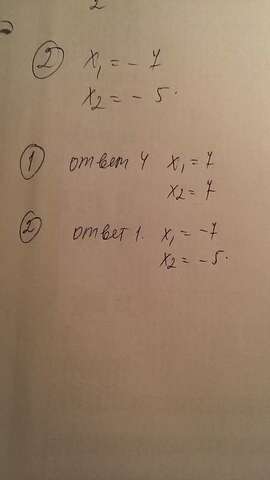 2
② x₁ = - 7
x₂ = - 5.
① ответ 4 x₁ = 7
x₂ = 7
② ответ 1. x₁ = -7
x₂ = -5.